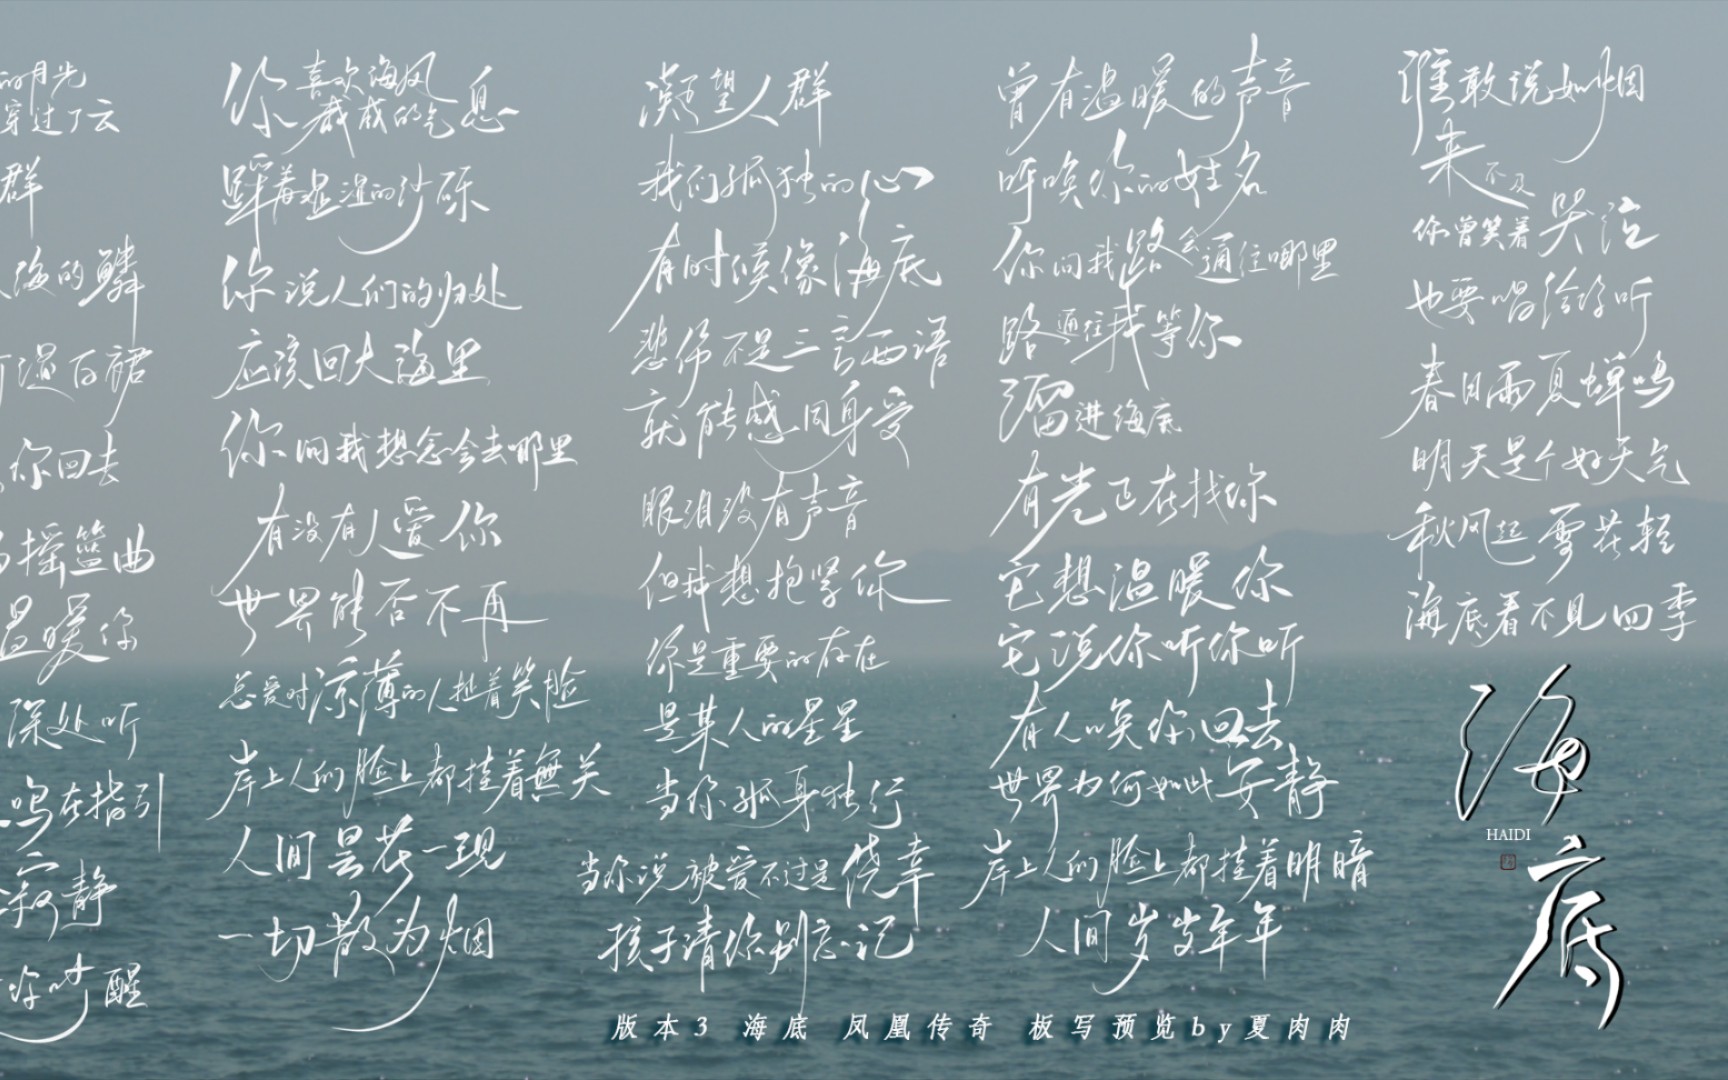 的月光
穿过了云
群
海的鳞
过百裙
你回去
摇篮曲
温暖你
深处听
鸣在指引
寂静
你吵醒
你喜欢海风
咸咸的气息
踩着湿湿的沙砾
你说人们的归处
应该回大海里
你问我想念会去哪里
有没有人爱你
世界能否不再
总爱对凉薄的人扯着笑脸
岸上人们脸上都挂着無关
人间昙花一现
一切散为烟
凝望人群
我们孤独的心
有时候像海底
悲伤不是三言两语
就能感同身受
眼泪没有声音
但我想抱紧你
你是重要的存在
是某人的星星
当你孤身独行
当你说被爱不过是侥幸
孩子请你别忘记
曾有温暖的声音
呼唤你的姓名
你问我路会通往哪里
路通往我等你
溜进海底
有光正在找你
它想温暖你
它说你听你听
有人唤你回去
世界为何如此安静
岸上人们脸上都挂着明暗
人间岁岁年年
谁敢说如烟
来不及
你曾笑着哭泣
也要唱给你听
春日雨夏蝉鸣
明天是个好天气
秋风起雪花轻
海底看不见四季
海底
HAIDI
版本3 海底 凤凰传奇 板写预览by夏肉肉